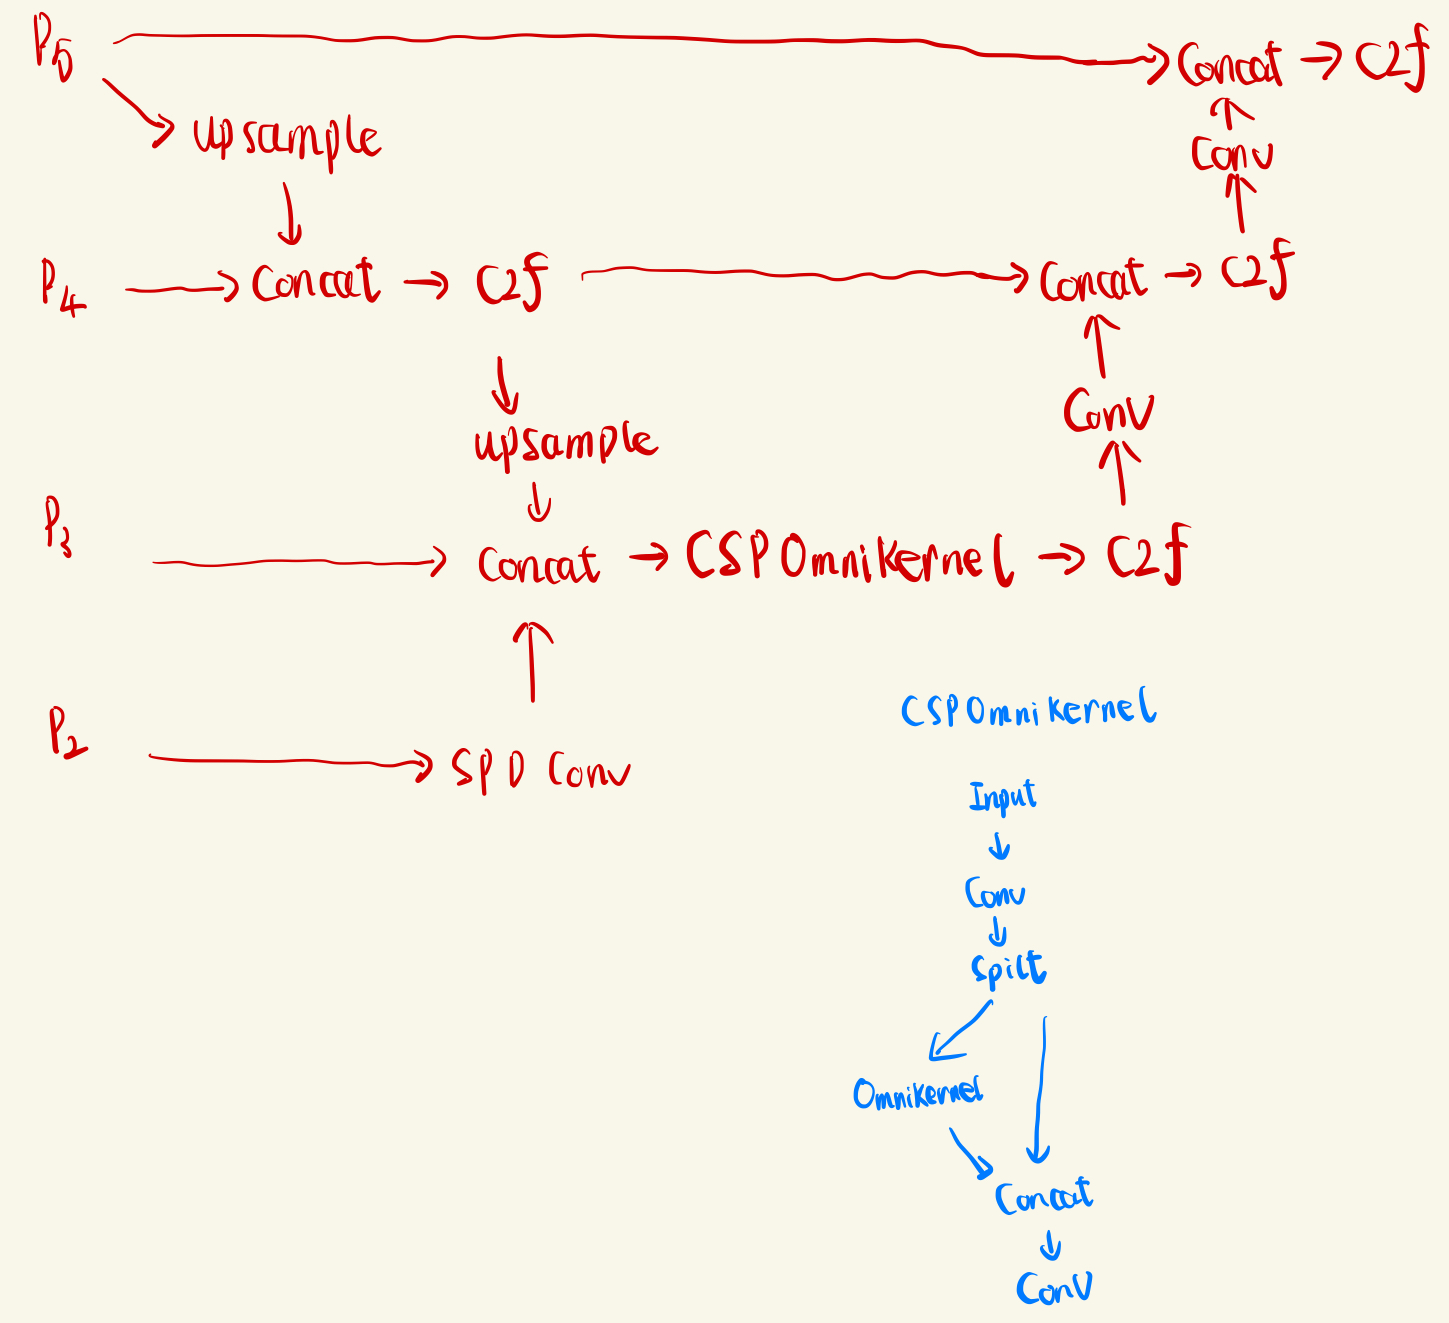 P5 Concat → C2f
upsample
Conv
P4 → Concat → C2f → Concat → C2f
Conv
upsample
P3 → Concat → CSPOmniKernel → C2f
P2 → SPD Conv
CSPOmniKernel
Input
Conv
Spilt
OmniKernel
Concat
Conv